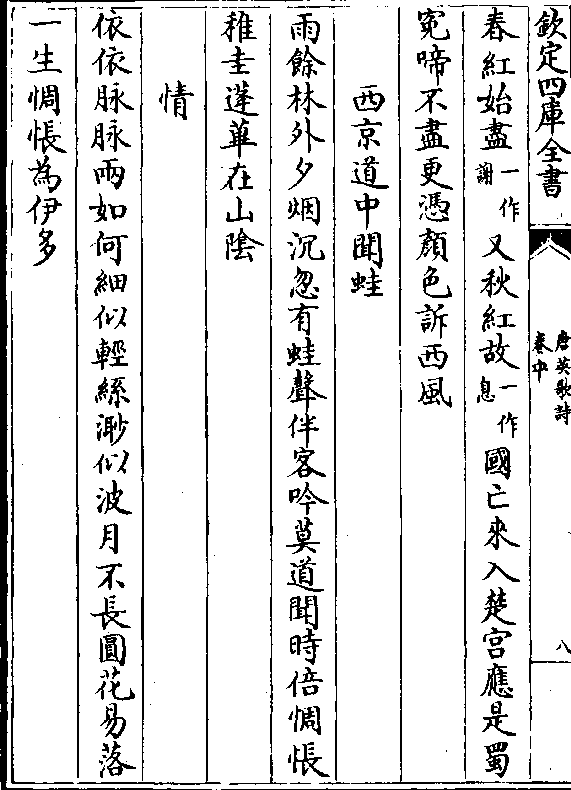 欽定四庫全書
唐英歌詩
卷中
八
春紅始盡一作謝又秋紅故一作息國亡來入楚宮應是蜀
冤啼不盡更憑顏色訴西風
西京道中聞蛙
雨餘林外夕烟沉忽有蛙聲伴客吟莫道聞時倍惆悵
稚圭蓬蓽在山陰
情
依依脉脉兩如何細似輕絲渺似波月不長圓花易落
一生惆悵為伊多